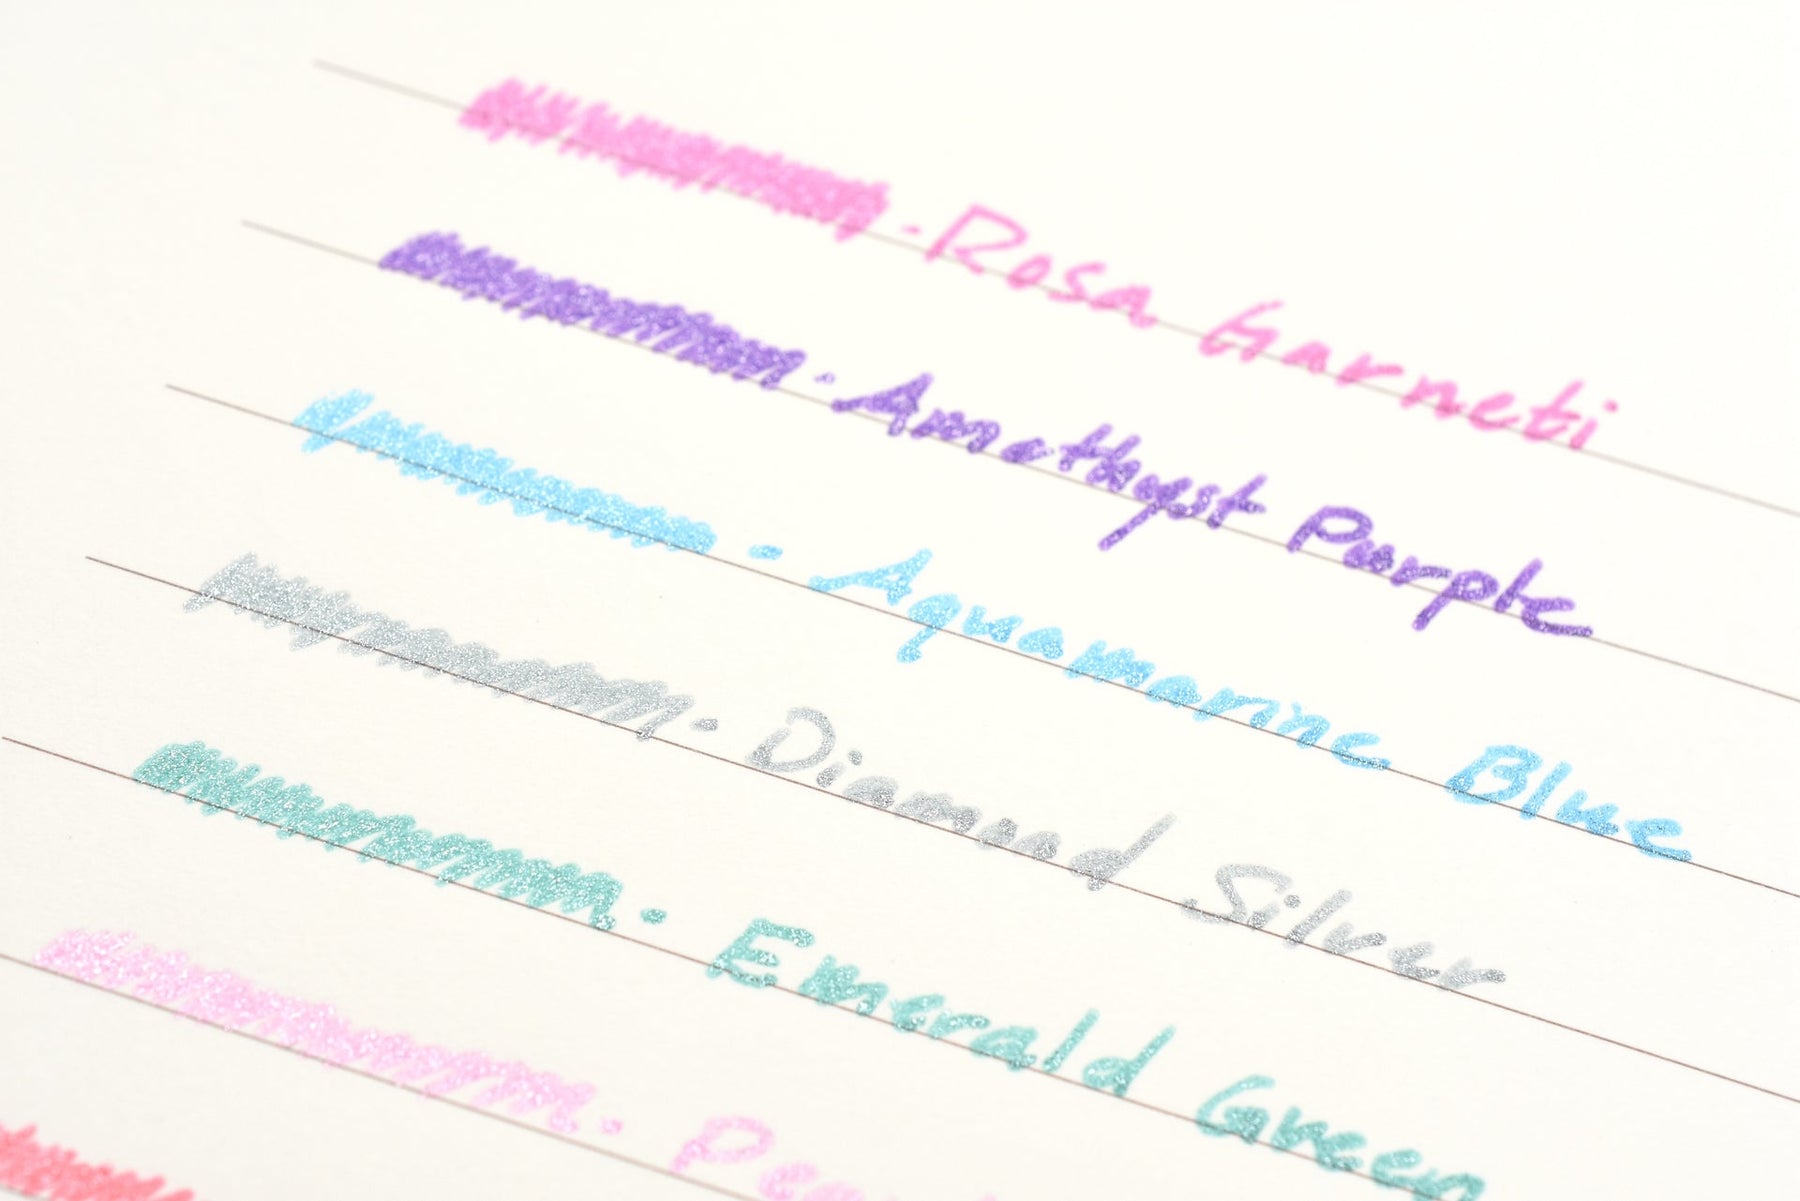 - Rosa Garneti
- Amethyst Purple
- Aquamarine Blue
- Diamond Silver
- Emerald Green